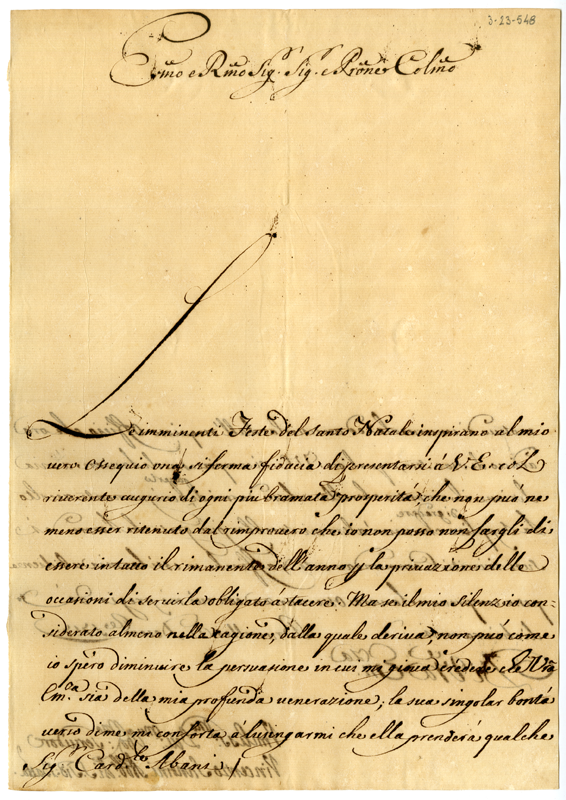 3-23-548
Em̃o e Rm̃o Sig.r Sig.r e Prõne Colm̃o
Le imminenti Feste del Santo Natale inspirano al mio
vero ossequio una sì ferma fiducia di presentarsi à V. E. col
riverente augurio di ogni più bramata prosperità, che non può ne
meno esser ritenuto dal rimprovero che io non posso non fargli di
essere in tutto il rimanente dell'anno p la privazione delle
occasioni di servirla obligato à tacere. Ma se il mio silenzio con-
siderato almeno nella cagione, dalla quale deriva, non può come
io spero diminuire la persuasione in cui mi giova credere che Vrã
Em.za sia della mia profunda venerazione, la sua singolar bontà
verso di me mi conforta à lusingarmi che ella prenderà qualche
Sig.r Card.le Albani